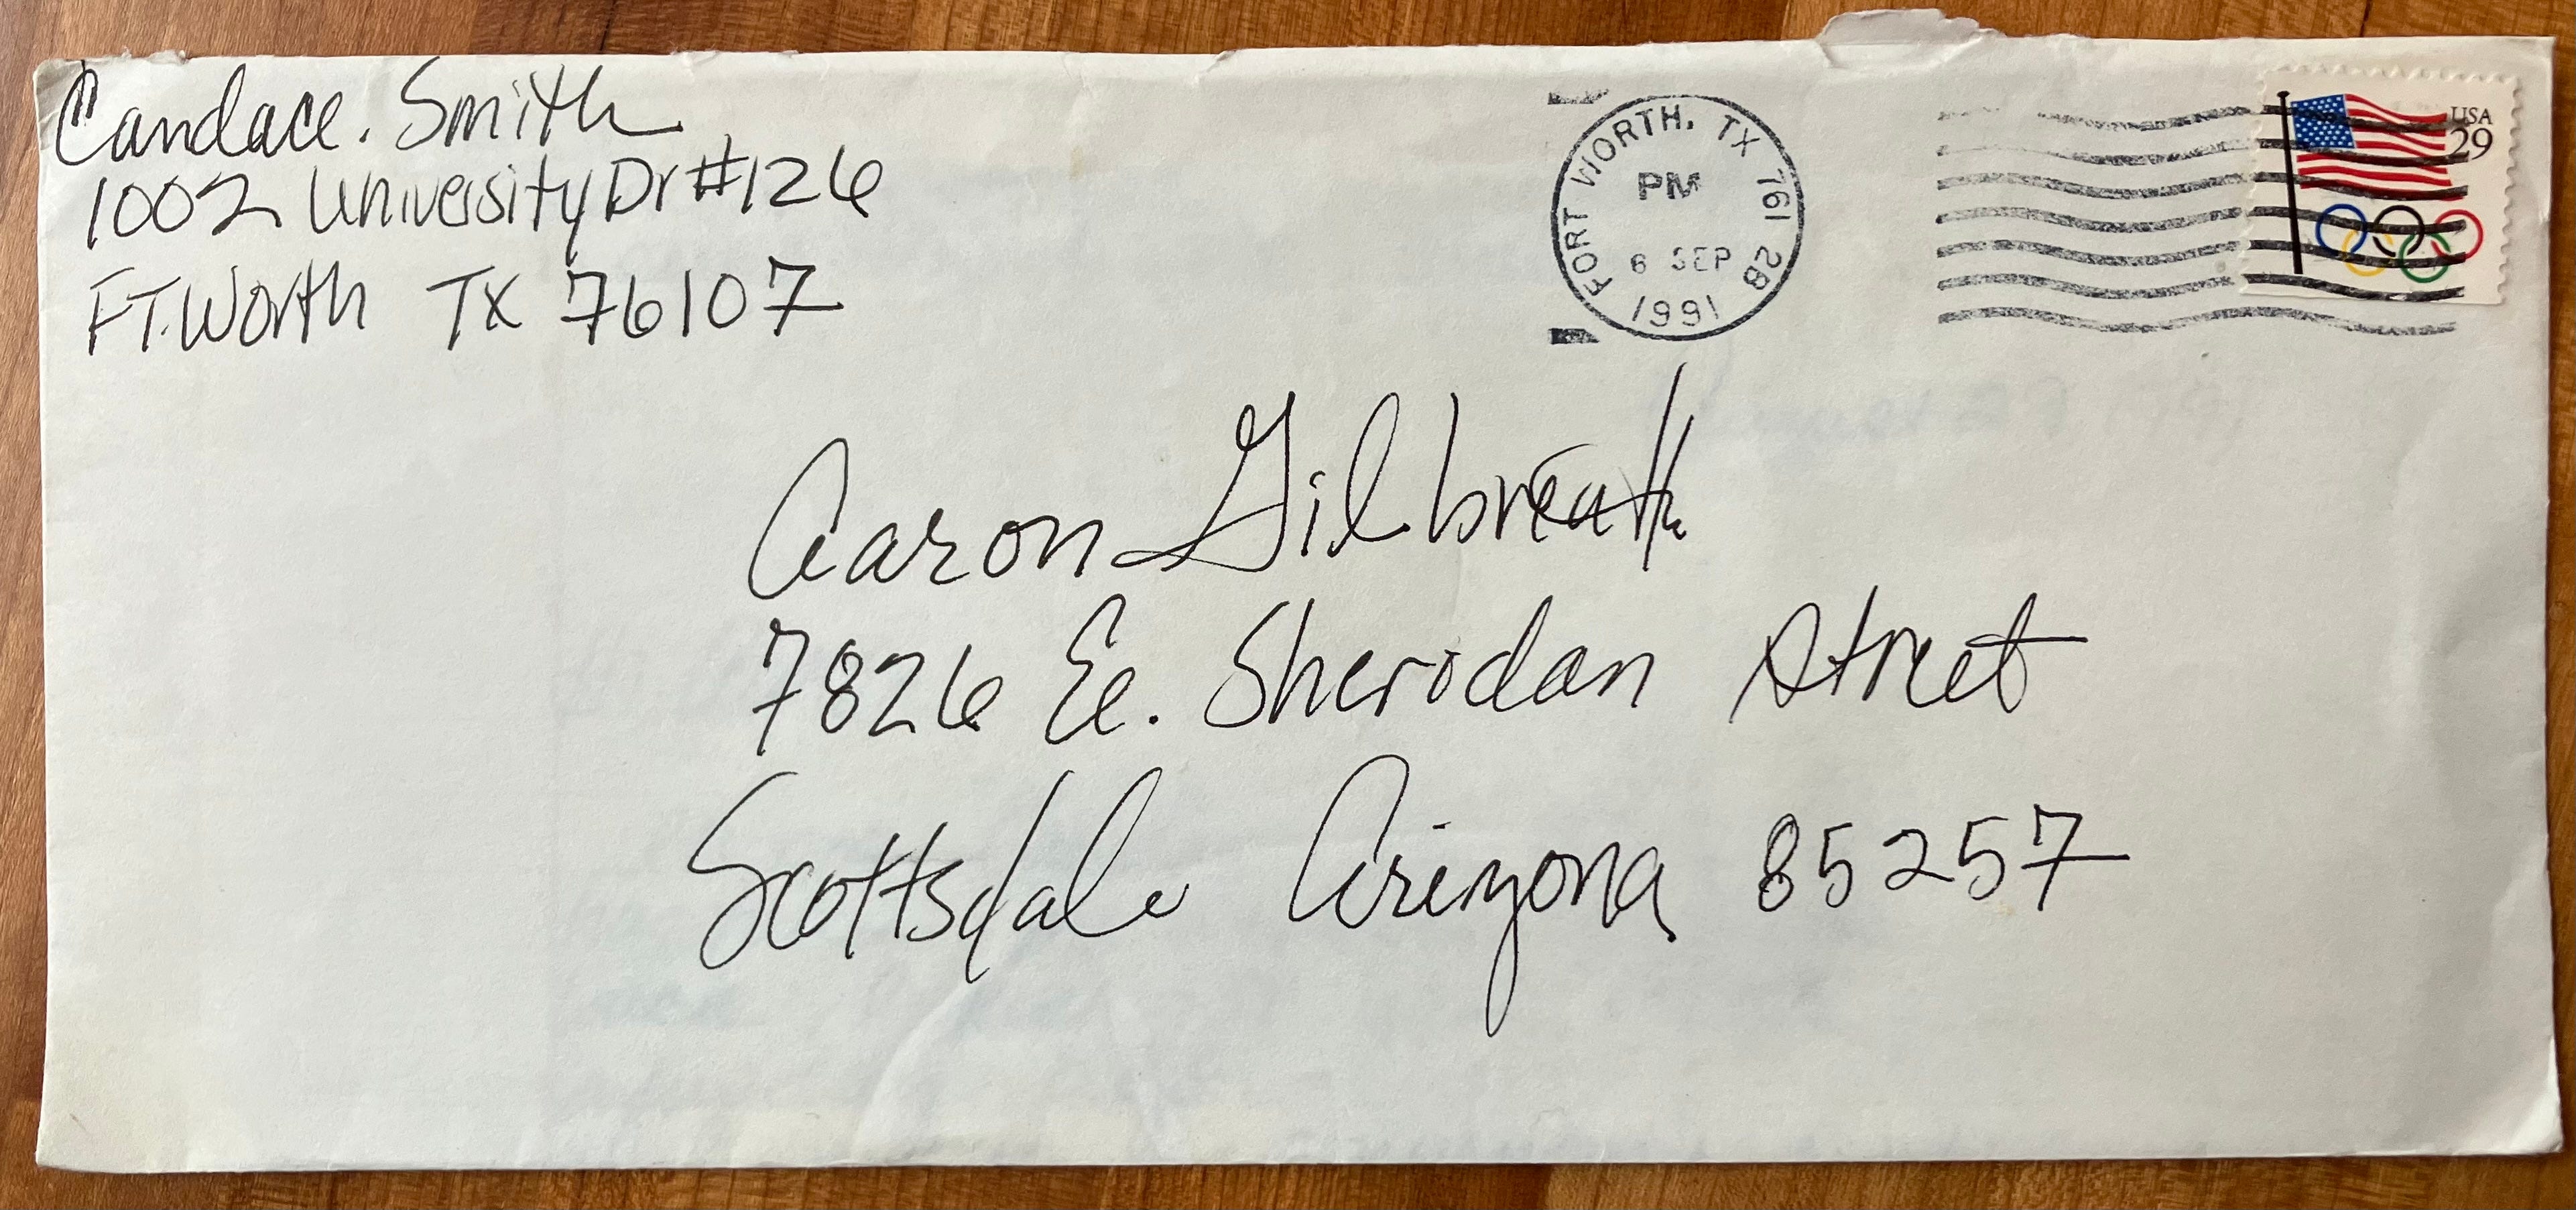 Candace. Smith
1002 University Dr #126
FT. Worth TX 76107
FORT WORTH, TX 761 2B
PM
6 SEP
1991
USA
29
Aaron Gilbreath
7826 Ee. Sheridan Street
Scottsdale Arizona 85257